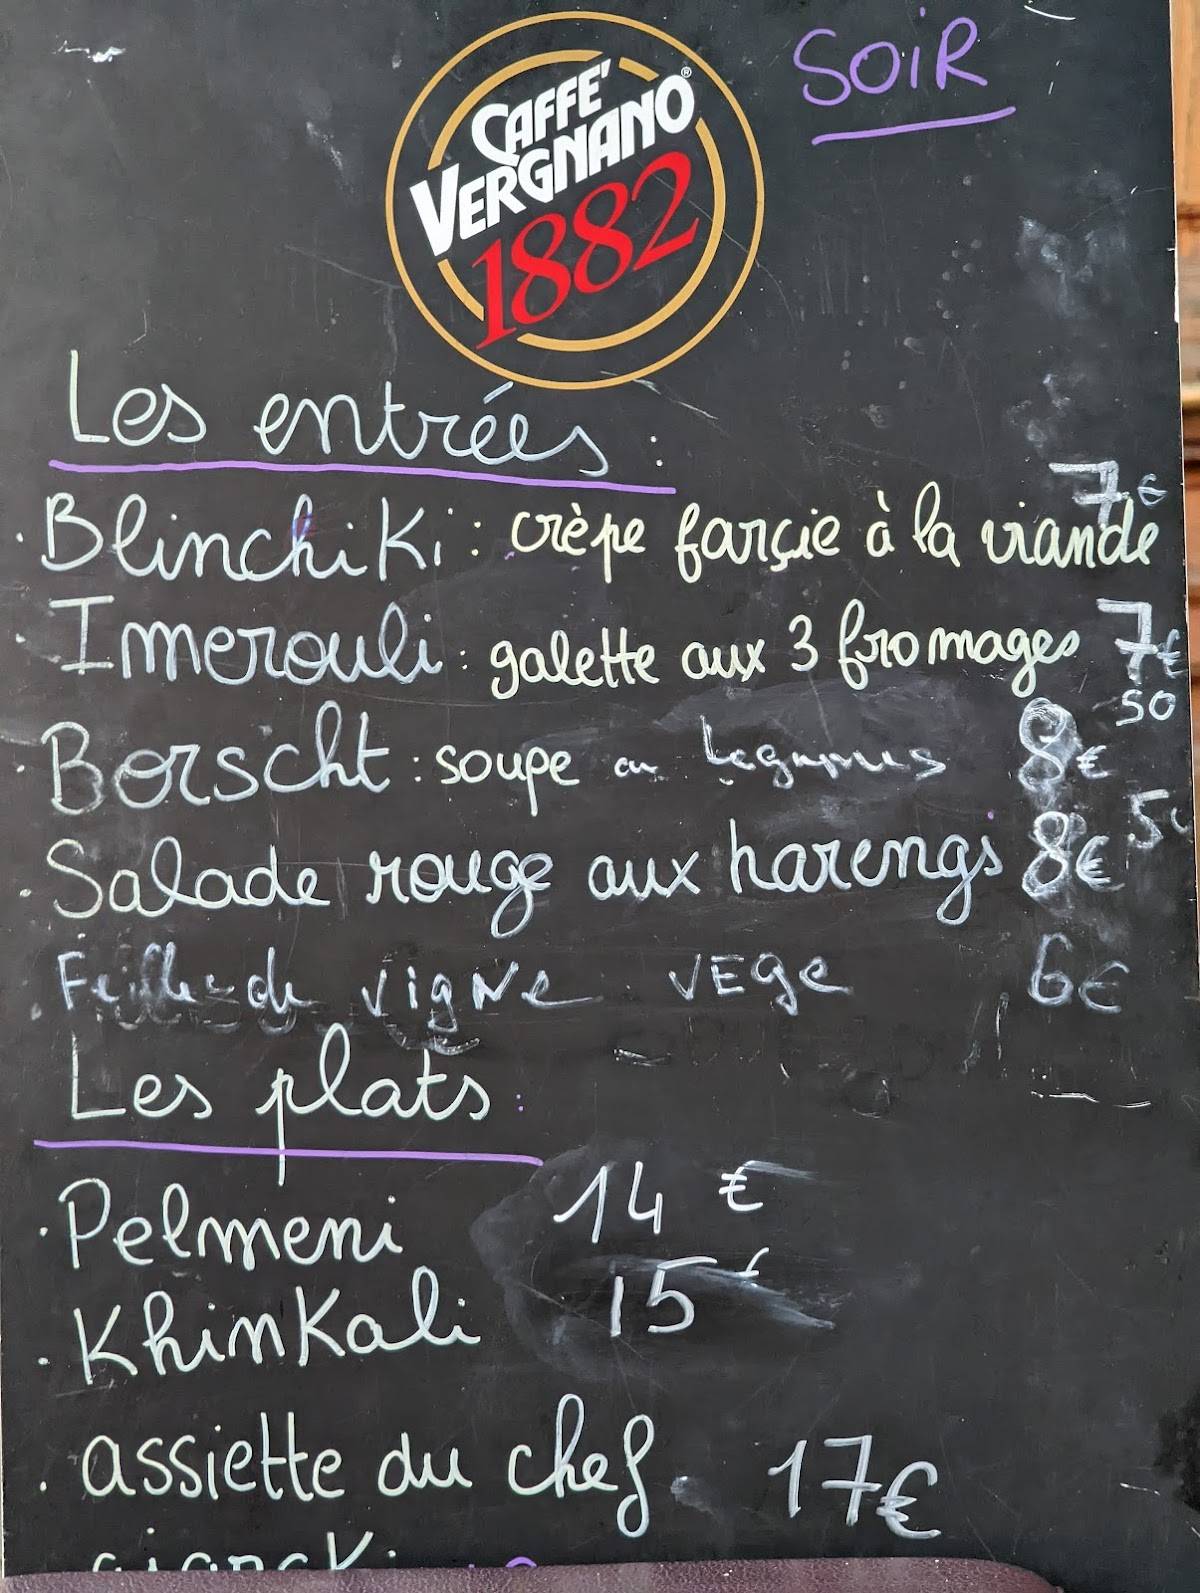 SOIR
CAFFE'
VERGNANO®
1882
Les entrées :
7€
· Blinchiki : crêpe farçie à la viande
· Imerouli : galette aux 3 fromages 7€
50
· Borscht : soupe au Legumes 8€
50
· Salade rouge aux harengs 8€
· de vigne VEGE 6€
Les plats :
· Pelmeni 14 €
· Khinkali 15 €
· assiette du chef 17€